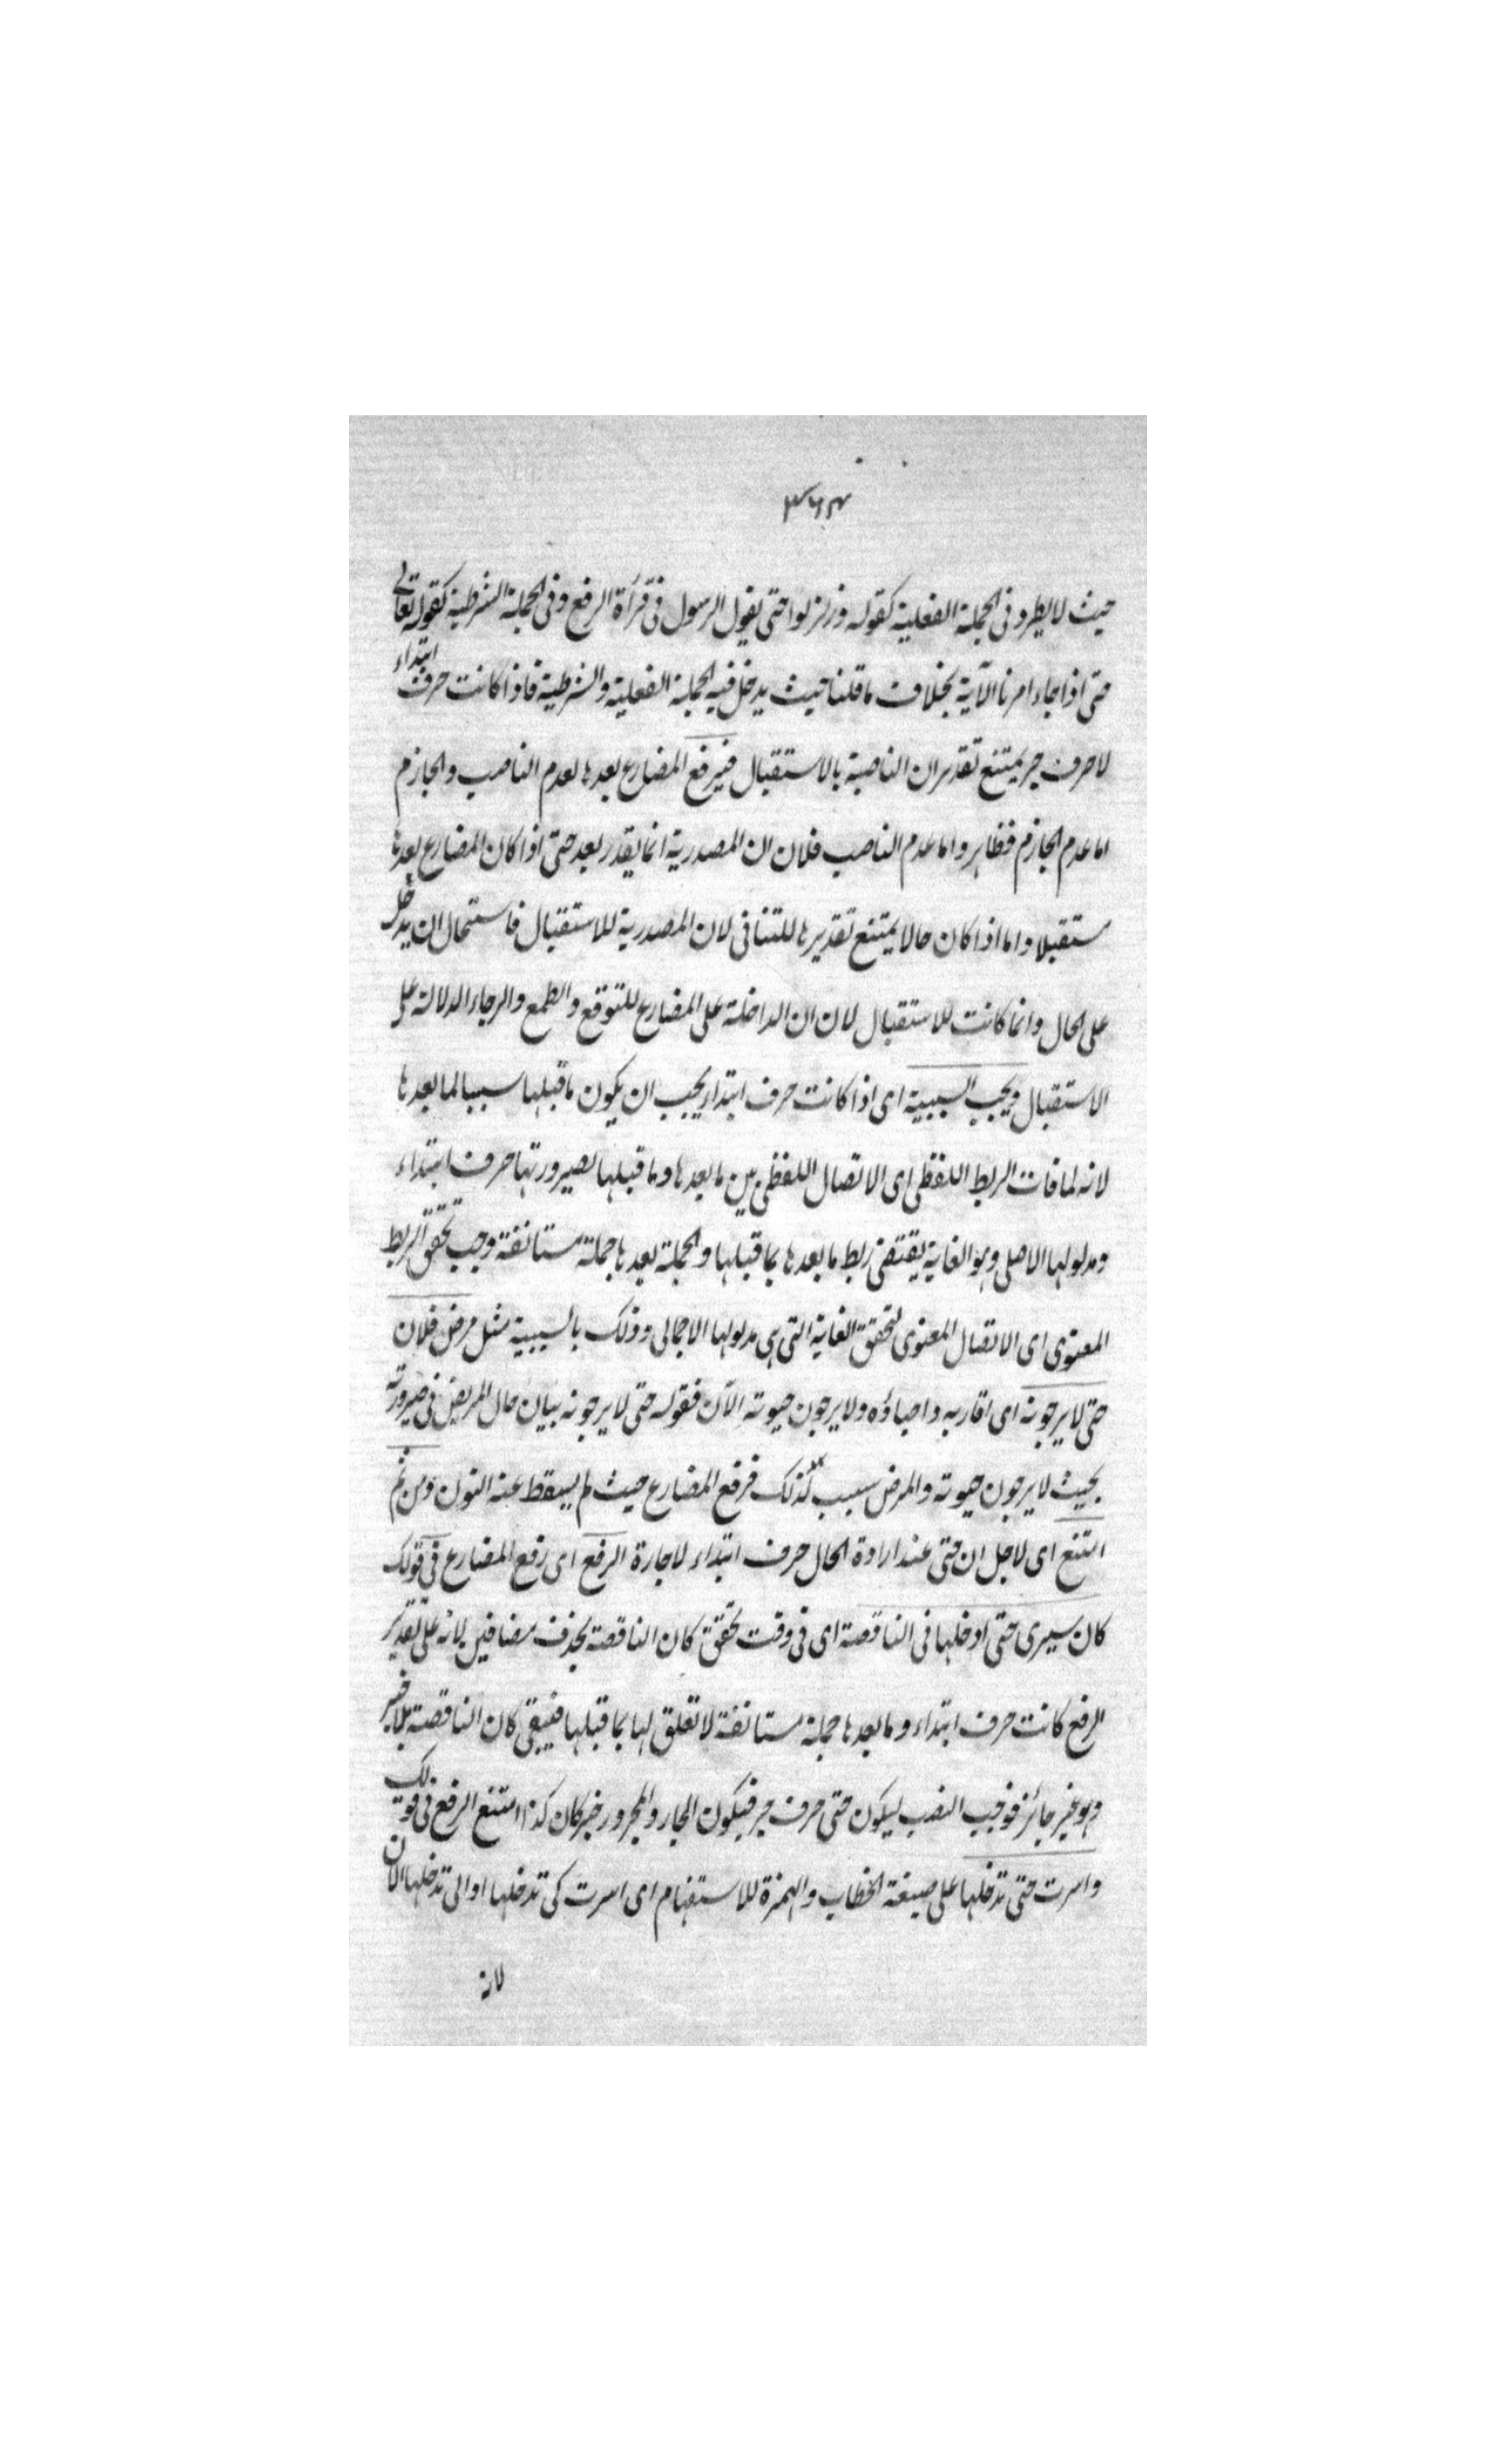 ٣٦٤
حيث لا يطرد فى الجملة الفعلية كقوله وزلزلوا حتى يقول الرسول فى قرأة الرفع وفى الجملة الشرطية كقوله تعالى
حتى اذا جاء امرنا الآية بخلاف ما قلنا حيث يدخل فيه الجملة الفعلية والشرطية فاذا كانت حرف ابتداء
لا حرف جر يمتنع تقدير ان الناصبة بالاستقبال فيرفع المضارع بعدها لعدم الناصب والجازم
اما عدم الجازم فظاهر واما عدم الناصب فلان ان المصدرية انما يقدر بعد حتى اذا كان المضارع بعدها
مستقبلا واما اذا كان حالا يمتنع تقديرها للتنافى لان المصدرية للاستقبال فاستحال ان يدخل
على الحال وانما كانت للاستقبال لان ان الداخلة على المضارع للتوقع والطمع والرجاء الدلالة على
الاستقبال ويجب السببية اى اذا كانت حرف ابتداء يجب ان يكون ما قبلها سببا لما بعدها
لانه لما فات الربط اللفظى اى الاتصال اللفظى بين ما بعدها وما قبلها بصيرورتها حرف ابتداء
ومدلولها الاصلى وهو الغاية يقتضى ربط ما بعدها بما قبلها والجملة بعدها جملة مستانفة وجب تحقق الربط
المعنوى اى الاتصال المعنوى لتحقق الغاية التى هى مدلولها الاجمالى وذلك بالسببية مثل مرض فلان
حتى لا يرجونه اى اقاربه واحباؤه ولا يرجون حيوته الآن فقوله حتى لا يرجونه بيان حال المريض فى صيرورته
بحيث لا يرجون حيوته والمرض سبب لذلك فرفع المضارع حيث لم يسقط عنه النون ومن ثم
امتنع اى لاجل ان حتى عند ارادة الحال حرف ابتداء لا جارة الرفع اى رفع المضارع فى قولك
كان سيرى حتى ادخلها فى الناقصة اى فى وقت تحقق كان الناقصة بحذف مضافين لانه على تقدير
الرفع كانت حرف ابتداء وما بعدها جملة مستانفة لا تعلق لها بما قبلها فيبقى كان الناقصة بلا خبر
وهو غير جائز فوجب النصب ليكون حتى حرف جر فيكون الجار والمجرور خبر كان كذا امتنع الرفع فى قولك
واسرت حتى تدخلها على صيغة الخطاب والهمزة للاستفهام اى اسرت كى تدخلها او الى تدخلها الآن
لانه